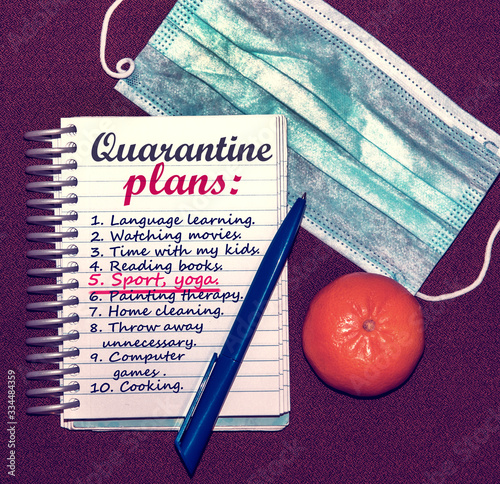 Quarantine
plans:
1. Language learning.
2. Watching movies.
3. Time with my kids.
4. Reading books.
5. Sport, yoga.
6. Painting therapy.
7. Home cleaning.
8. Throw away
unnecessary.
9. Computer
games .
10. Cooking.
334484359